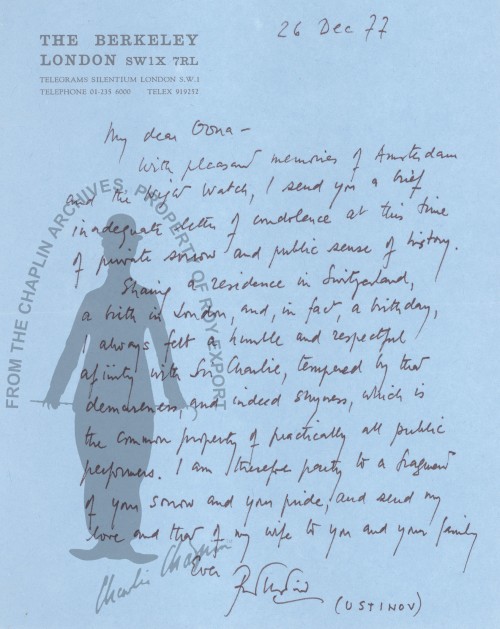 THE BERKELEY
LONDON SW1X 7RL
TELEGRAMS SILENTIUM LONDON S.W.1
TELEPHONE 01-235 6000 TELEX 919252
26 Dec 77
My dear Oona –
With pleasant memories of Amsterdam
and the Night Watch, I send you a brief
inadequate letter of condolence at this time
of private sorrow and public sense of history.
Sharing a residence in Switzerland,
a birth in London, and, in fact, a birthday,
I always felt a humble and respectful
affinity with Sir Charlie, tempered by that
demureness, and indeed shyness, which is
the common property of practically all public
performers. I am therefore party to a fragment
of your sorrow and your pride, and send my
love and that of my wife to you and your family
Ever
(USTINOV)
FROM THE CHAPLIN ARCHIVES, PROPERTY OF ROY EXPORT
Charlie Chaplin